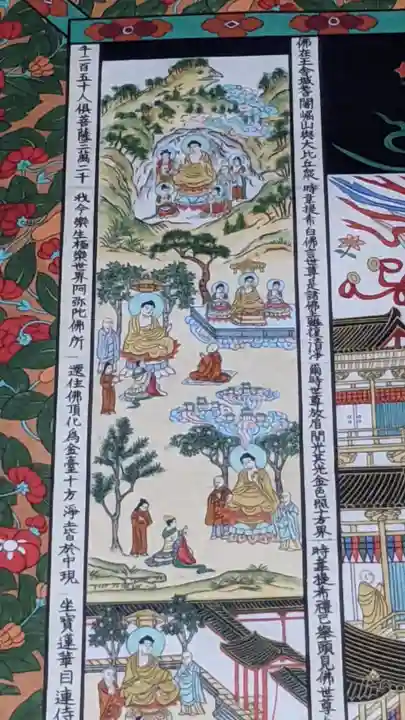 佛在王舍城耆闍崛山與大比丘衆 時韋提希白佛言世尊是諸佛土雖復清淨 爾時世尊放眉間光其光金色照十方界 時韋提希禮已擧頭見佛世尊
千二百五十人俱菩薩三萬二千 我今樂生極樂世界阿弥陀佛所 還住佛頂化爲金臺十方淨土皆於中現 坐寶蓮華目連侍